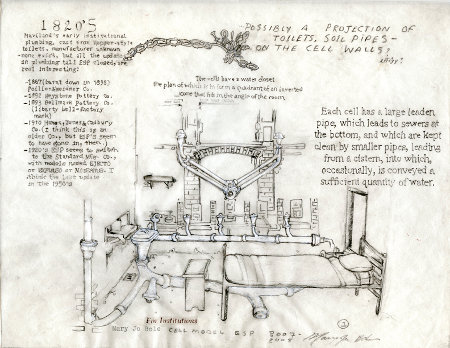 1820's
Haviland's early institutional
plumbing, cast from hopper-style
toilets, manufacturer unknown
in plumbing till ESP closed, are
real interesting:
-1867(burnt down in 1892)
-1892 Keystone pottery Co.
-1893 Bellmark Pottery Co.
(liberty bell-factory
mark)
Co.(I think this is an
older Co., but ESP's seem
to have come in then.)
-1920's ESP seems to switch
to the Standard Mfg. Co.,
with models named EJECTO
think the last update
in the 1950's
-POSSIBLY A PROJECTION OF
TOILETS, SOIL PIPES-
ON THE CELL WALLS?
The cells have a water closet
the plan of which is in form a quadrant of an inverted
cone that fits in the angle of the room.
Each cell has a large leaden
pipe, which leads to sewers at
the bottom, and which are kept
clean by smaller pipes, leading
from a cistern, into which,
occasionally, is conveyed a
sufficient quantity of water.
For Institutions
Mary Jo Bole CELL MODEL ESP 2007-
2008